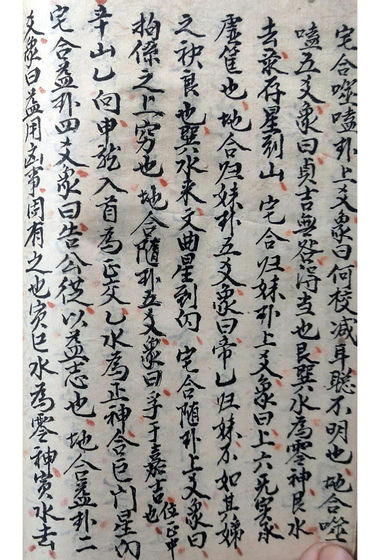 宅合噬嗑卦上爻象曰何校減耳聪不明也 地合噬
嗑五爻象曰貞吉無咎得当也艮巽水為零神艮水
去來存星到山 宅合归妹卦上爻象曰上六无实承
虚筐也 地合归妹卦五爻象曰帝乙归妹不如其娣
之袂良也巽水來文曲星到向 宅合随卦上爻象曰
拘係之上窮也 地合随卦五爻象曰孚于嘉吉也位正中
辛山乙向申龍入首為正交乙水為正神合巨门星到向
宅合益卦四爻象曰告公從以益志也 地合益卦二
爻象曰益用凶事固有之也寅巳水為零神寅水去